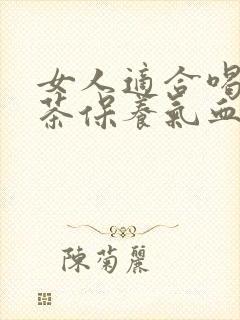 女人適合喝
茶保養氣血
陳菊麗